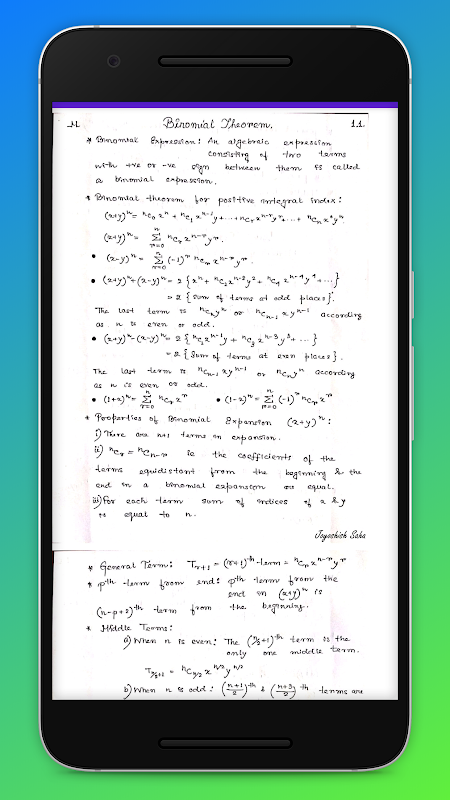 M. Binomial Theorem. 1.1.
* Binomial Expression: An algebraic expression
consisting of two terms
with +ve or -ve sign between them is called
a binomial expression.
* Binomial theorem for positive integral index:
(x+y)ⁿ = ⁿC₀ xⁿ + ⁿC₁ xⁿ⁻¹y + ... + ⁿCᵣ xⁿ⁻ʳyʳ + ... + ⁿCₙ x⁰yⁿ
(x+y)ⁿ = Σ_{r=0}^{n} ⁿCᵣ xⁿ⁻ʳ yʳ.
• (x-y)ⁿ = Σ_{r=0}^{n} (-1)ʳ ⁿCᵣ xⁿ⁻ʳ yʳ.
• (x+y)ⁿ + (x-y)ⁿ = 2 { xⁿ + ⁿC₂ xⁿ⁻²y² + ⁿC₄ xⁿ⁻⁴y⁴ + ... }
= 2 { sum of terms at odd places }.
The last term is ⁿCₙyⁿ or ⁿCₙ₋₁ x yⁿ⁻¹ according
as n is even or odd.
• (x+y)ⁿ - (x-y)ⁿ = 2 { ⁿC₁xⁿ⁻¹y + ⁿC₃ xⁿ⁻³y³ + ... }
= 2 { Sum of terms at even places }.
The last term is ⁿCₙ₋₁ x yⁿ⁻¹ or ⁿCₙyⁿ according
as n is even or odd.
• (1+x)ⁿ = Σ_{r=0}^{n} ⁿCᵣ xʳ • (1-x)ⁿ = Σ_{r=0}^{n} (-1)ʳ ⁿCᵣ xʳ
* Properties of Binomial Expansion (x+y)ⁿ :
i) There are n+1 terms in expansion.
ii) ⁿCᵣ = ⁿCₙ₋ᵣ ie the coefficients of the
terms equidistant from the beginning & the
end in a binomial expansion are equal.
iii) For each term sum of indices of x & y
is equal to n.
Joyoshish Saha
* General Term: Tᵣ₊₁ = (r+1)ᵗʰ term = ⁿCᵣ xⁿ⁻ʳ yʳ
* pᵗʰ term from end: pᵗʰ term from the
end in (x+y)ⁿ is
(n-p+2)ᵗʰ term from the beginning.
* Middle Terms:
a) When n is even: The (n/2+1)ᵗʰ term is the
only one middle term.
T_{n/2+1} = ⁿC_{n/2} x^{n/2} y^{n/2}
b) When n is odd: ((n+1)/2)ᵗʰ & ((n+3)/2)ᵗʰ terms are